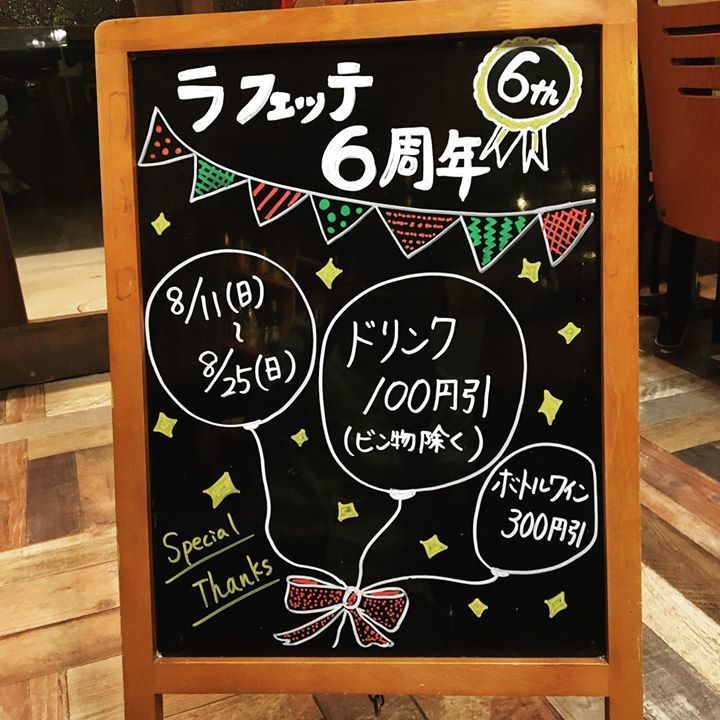 ラフェッテ
6周年
6th
8/11(日)
～
8/25(日)
ドリンク
100円引
(ビン物除く)
ボトルワイン
300円引
Special
Thanks